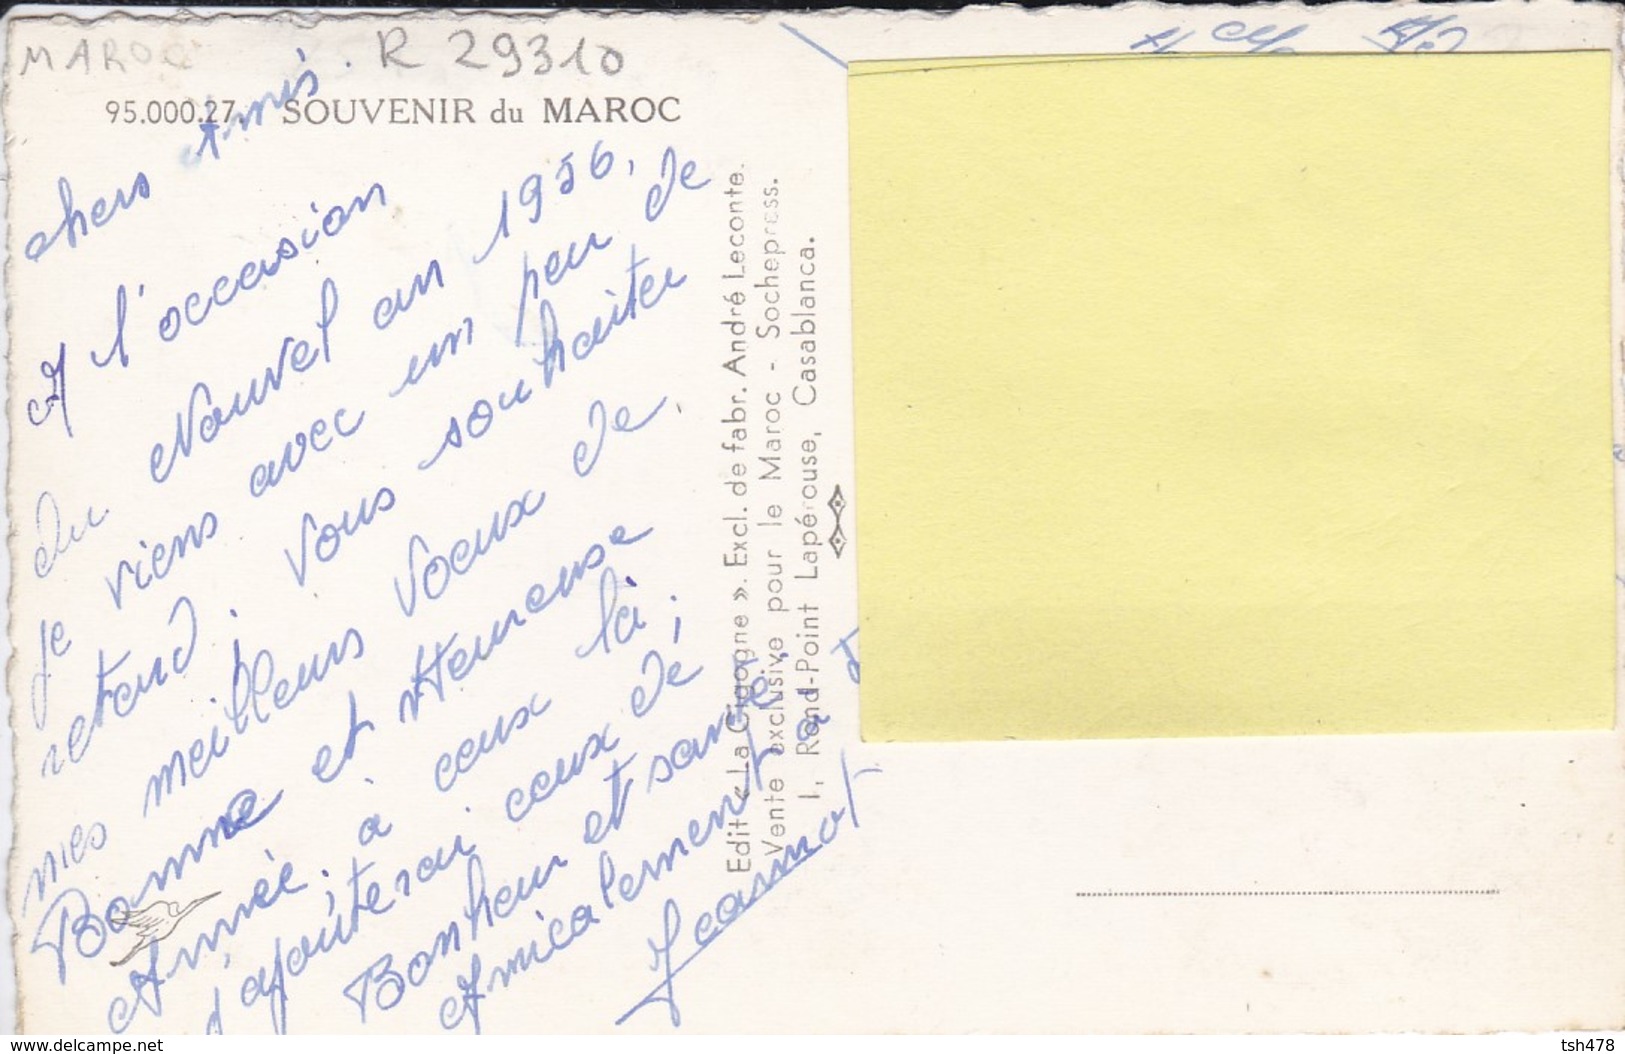 MAROC
R 29310
95.000.27. SOUVENIR du MAROC
chers Amis.
A l'occasion
du Nouvel an 1956,
je viens avec un peu de
retard. vous souhaiter
mes meilleurs voeux de.
Bonne et Heureuse
Année. à ceux là;
j'ajouterai ceux de
Bonheur et santé.
Amicalement à
Jeannot
Edit « La Cigogne ». Excl. de fabr. André Leconte.
Vente exclusive pour le Maroc - Sochepress.
1, Rond-Point Lapérouse, Casablanca.
www.delcampe.net
tsh478